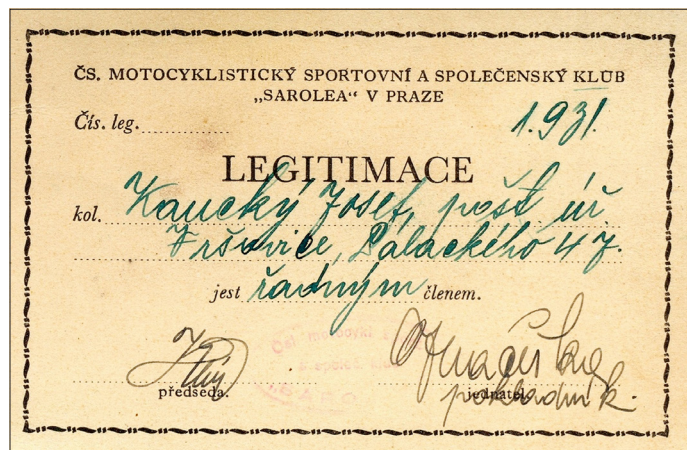 ČS. MOTOCYKLISTICKÝ SPORTOVNÍ A SPOLEČENSKÝ KLUB
„SAROLEA“ V PRAZE
Čís. leg.
1.931.
LEGITIMACE
kol. Kaucký Josef, pošt. úř.
Vršovice, Palackého 47.
jest řádným členem.
předseda.
jednatel.
pokladník.